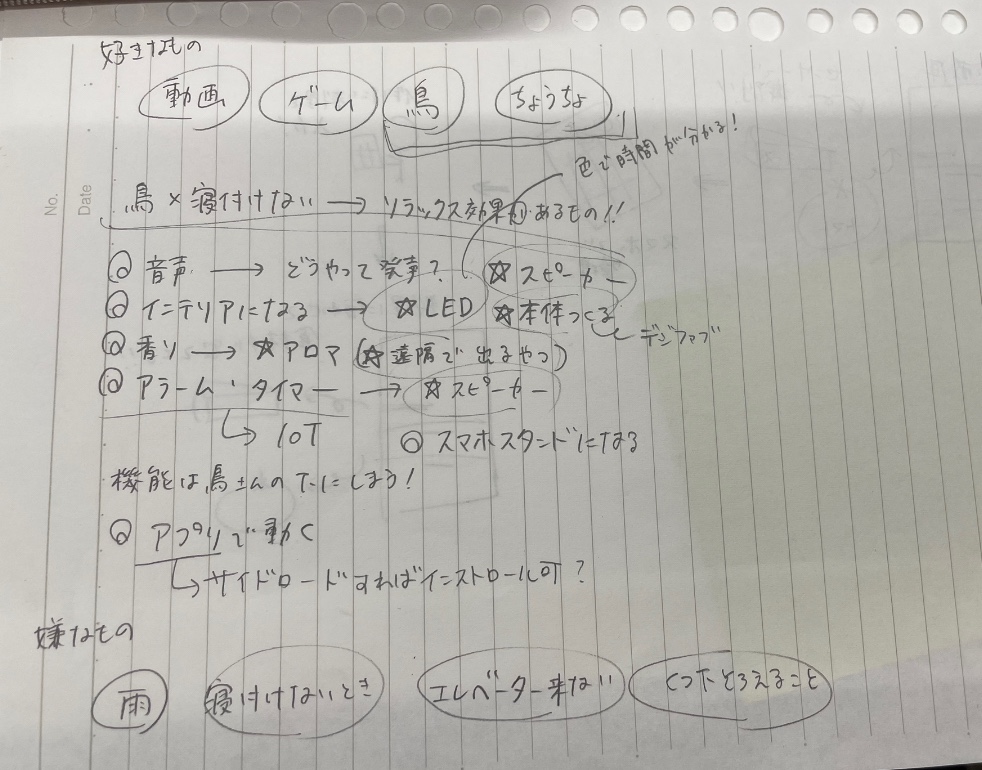 好きなもの
動画 ゲーム 鳥 ちょうちょ
色で時間が分かる!
No.
Date
鳥×寝付けない→リラックス効果があるもの!!
◎音声→どうやって発声? ☆スピーカー
◎インテリアになる→☆LED ☆本体つくる
デジファブ
◎香り→☆アロマ(☆遠隔で出るやつ)
◎アラーム・タイマー→☆スピーカー
IoT
◎スマホスタンドになる
機能は鳥さんの下にしまう!
◎アプリで動く
サイドロードすればインストロール可?
嫌なもの
雨 寝付けないとき エレベーター来ない くつ下そろえること